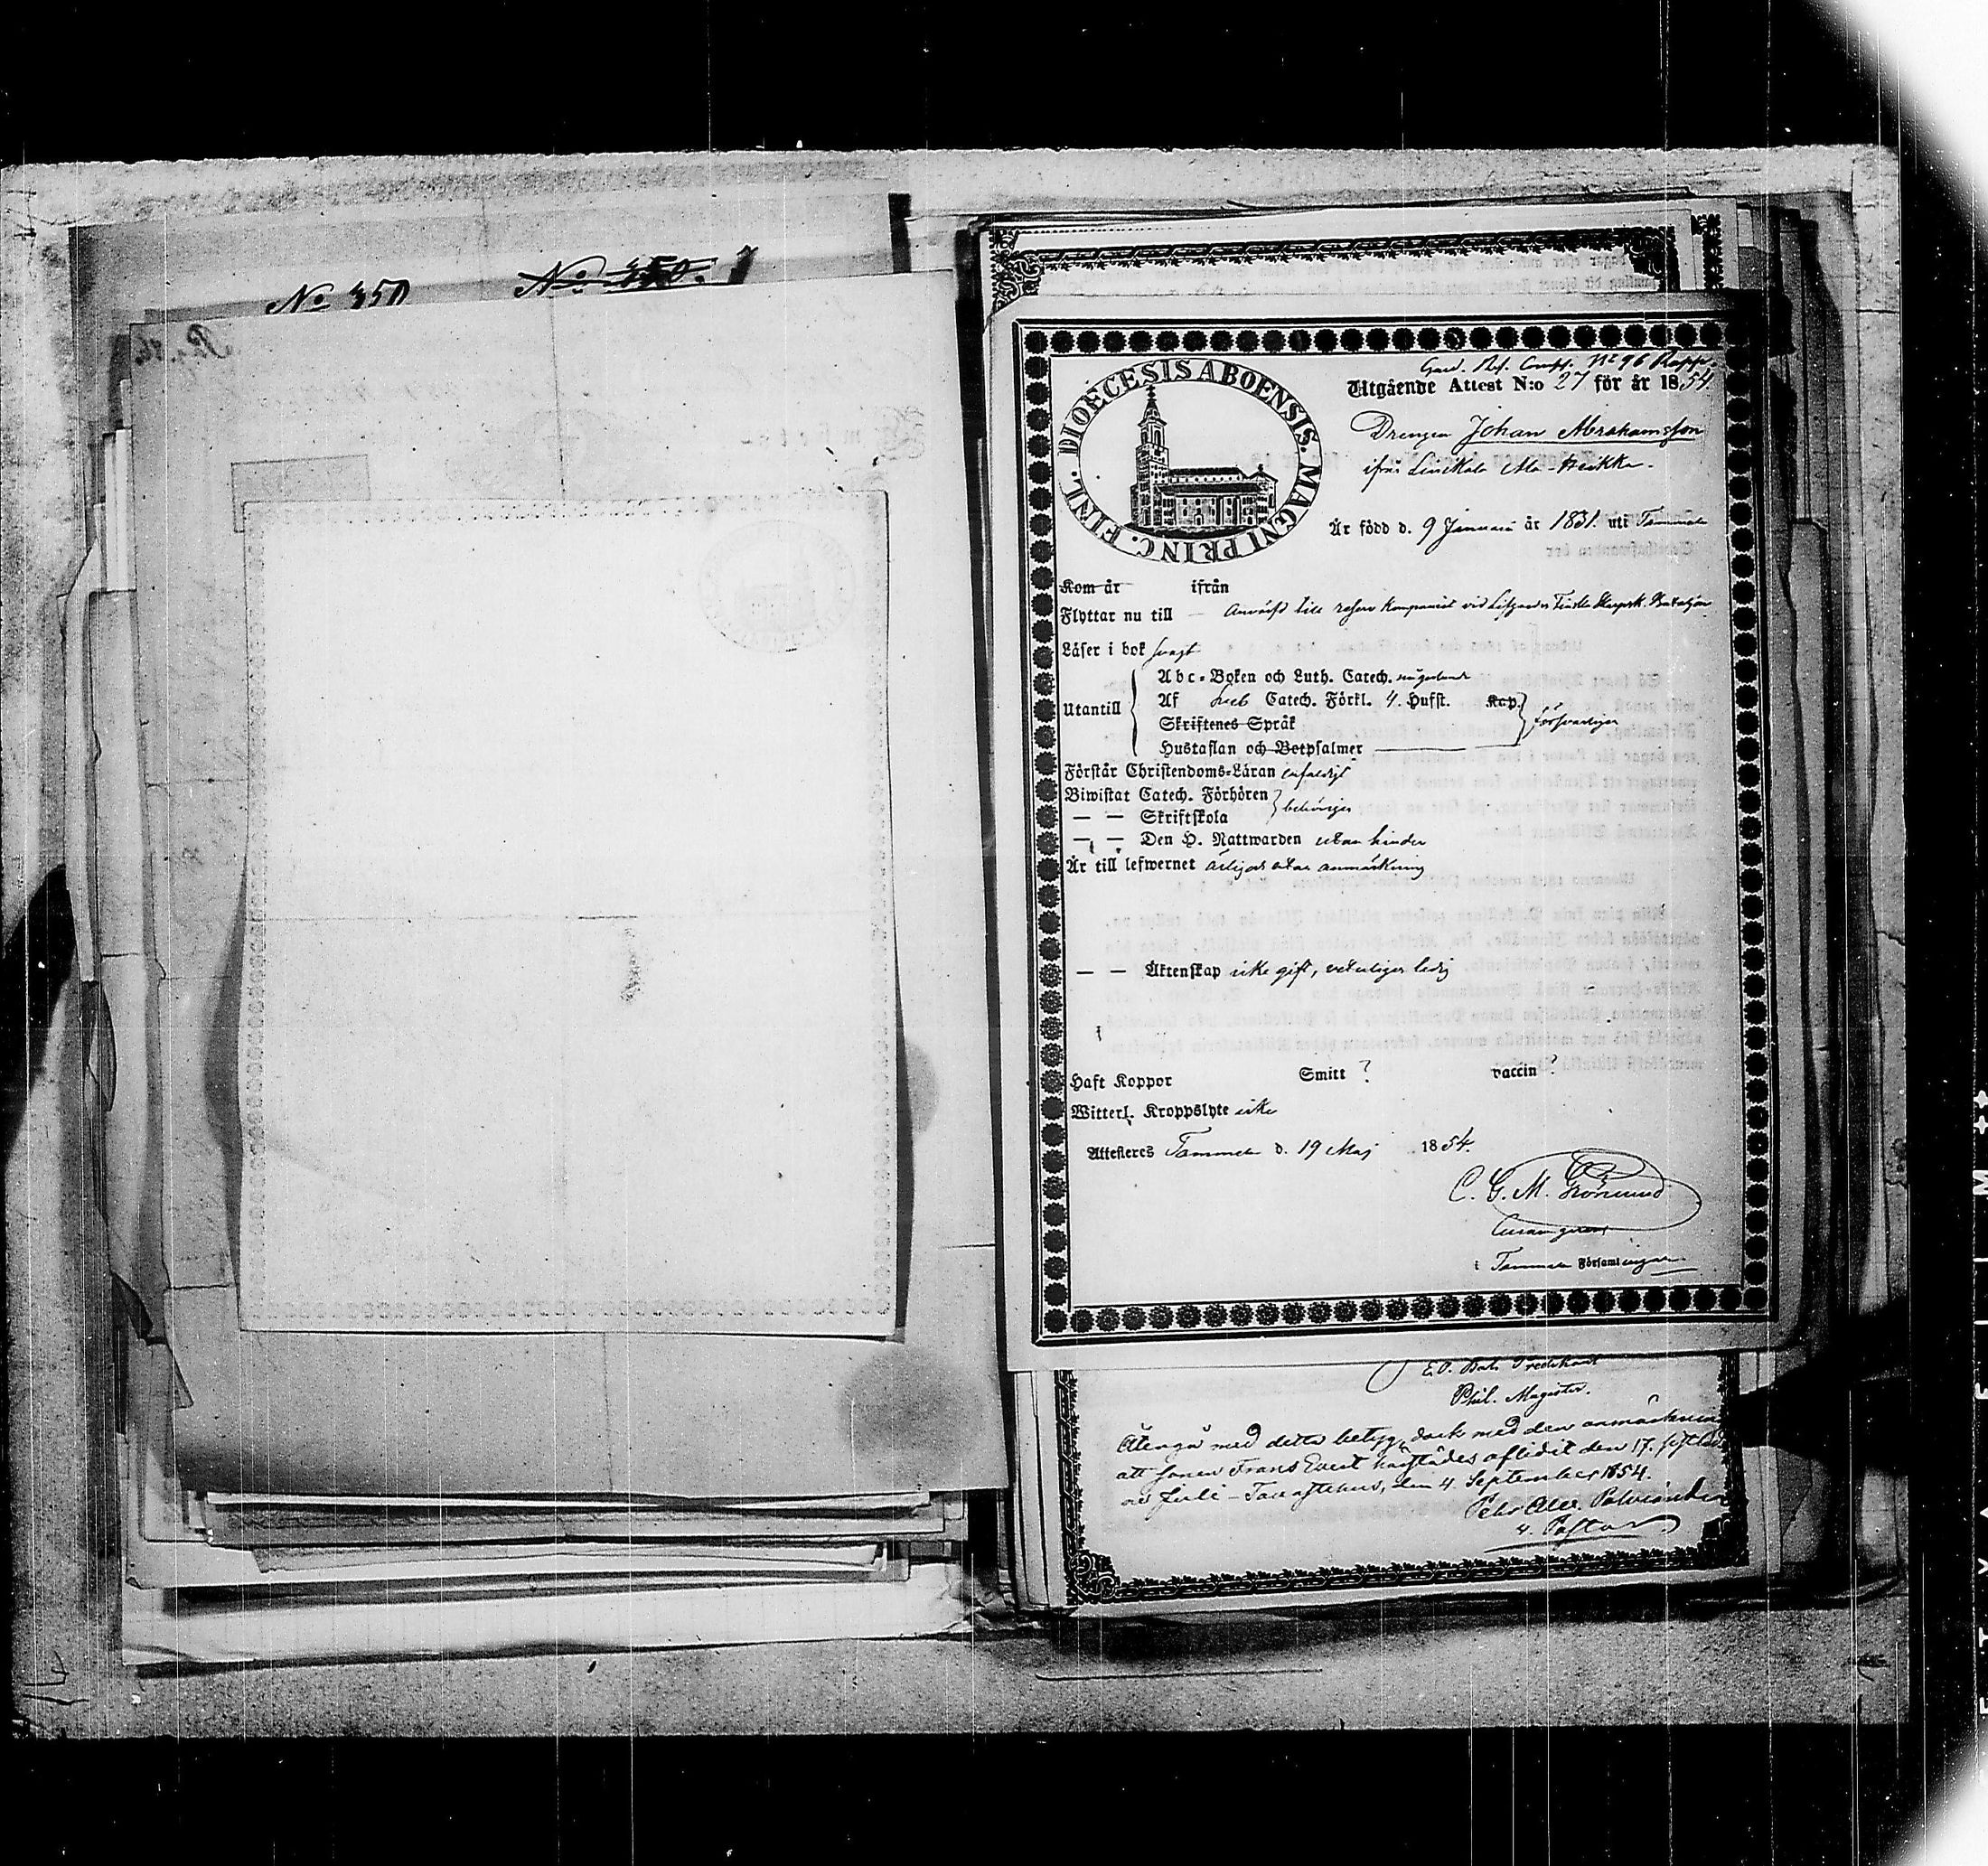 No 350
No 350.
Gard. Res. Comp. No 96 Rapp.
Utgående Attest N:o 27 för år 1854.
DIOECESIS ABOENSIS. MAGNI PRINC. FINL.
Drengen Johan Abrahamsson
ifrån Liesikala Ala-Heikka.
Är född d. 9 Januari år 1831. uti Tammela
Kom år ifrån
Flyttar nu till — Anvärfd till reserv Kompaniet vid Lifgardes Finska Skarpsk. Bataljon
Läser i bok svagt
Abc-Boken och Luth. Catech. någorlunda
Utantill
Af Sveb Catech. Förkl. 4. Hufst. Kap.
försvarligen
Skriftenes Språk
Hustaflan och Botpsalmer
Förstår Christendoms-Läran enfaldigt
Biwistat Catech. Förhören
behörigen
— — Skriftskola
— — Den H. Nattwarden utan hinder
Är till lefwernet ärligt utan anmärkning
— — Äktenskap icke gift, veterligen ledig
Haft Koppor Smitt ? vaccin ?
Witterl. Kroppslyte icke
Attesteras Tammela d. 19 Maj 1854.
C. G. M. Grönlund
i Tammela Församlingar
E. O. Bat. Predikant
Phil. Magister.
Återgå med detta betyg, dock med den anmärkning
att sonen Frans Evert härstädes aflidit den 17. sistledne
Juli – Tavastehus, den 4 September 1854.
v. Pastor